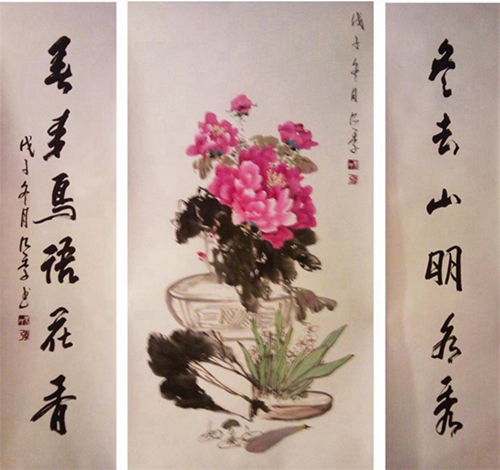 冬去山明水秀
戊子冬月
春来鸟语花香
戊子冬月